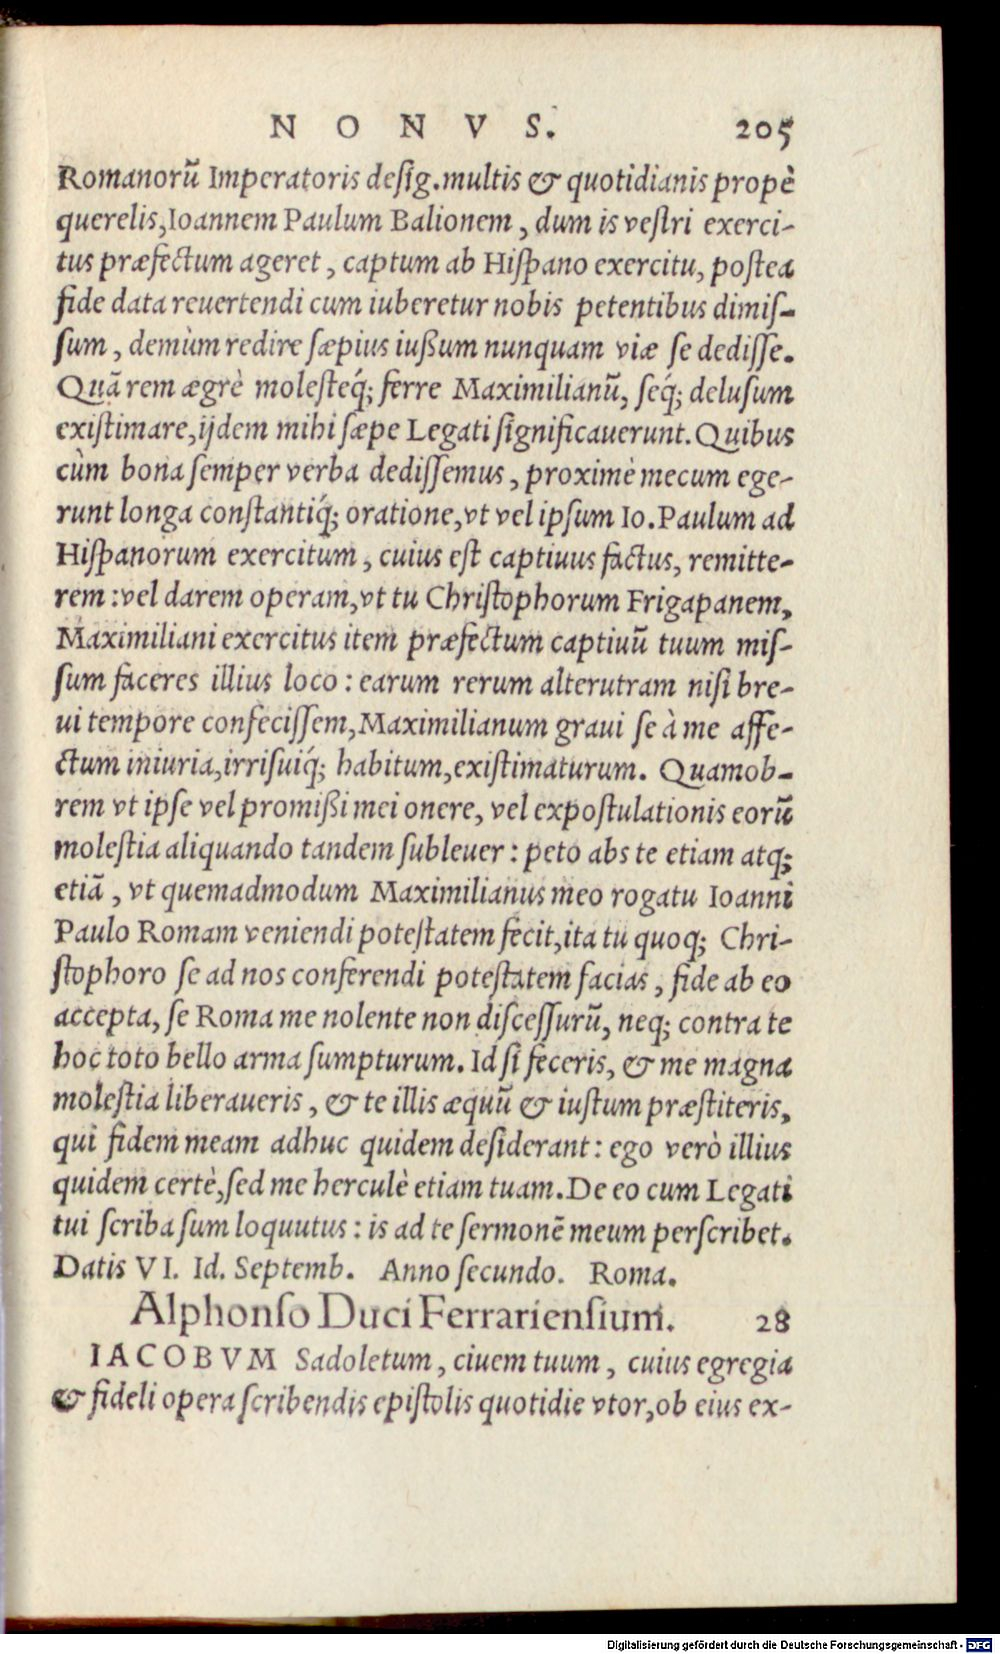 NONVS. 205
Romanorũ Imperatoris desig.multis & quotidianis propè
querelis,Ioannem Paulum Balionem, dum is vestri exerci-
tus præfectum ageret, captum ab Hispano exercitu, postea
fide data reuertendi cum iuberetur nobis petentibus dimis-
sum, demùm redire sæpius iußum nunquam viæ se dedisse.
Quã rem ægrè molesteq́; ferre Maximilianũ, seq́; delusum
existimare,ijdem mihi sæpe Legati significauerunt. Quibus
cùm bona semper verba dedissemus, proximè mecum ege-
runt longa constantiq́; oratione,vt vel ipsum Io. Paulum ad
Hispanorum exercitum, cuius est captiuus factus, remitte-
rem:vel darem operam,vt tu Christophorum Frigapanem,
Maximiliani exercitus item præfectum captiuũ tuum mis-
sum faceres illius loco: earum rerum alterutram nisi bre-
ui tempore confecissem, Maximilianum graui se à me affe-
ctum iniuria,irrisuiq́; habitum,existimaturum. Quamob-
rem vt ipse vel promißi mei onere, vel expostulationis eorũ
molestia aliquando tandem subleuer: peto abs te etiam atq;
etiã, vt quemadmodum Maximilianus meo rogatu Ioanni
Paulo Romam veniendi potestatem fecit,ita tu quoq; Chri-
stophoro se ad nos conferendi potestatem facias, fide ab eo
accepta, se Roma me nolente non discessurũ, neq; contra te
hoc toto bello arma sumpturum. Id si feceris, & me magna
molestia liberaueris, & te illis æquũ & iustum præstiteris,
qui fidem meam adhuc quidem desiderant: ego verò illius
quidem certè,sed me herculè etiam tuam. De eo cum Legati
tui scriba sum loquutus: is ad te sermonẽ meum perscribet.
Datis VI. Id. Septemb. Anno secundo. Roma.
Alphonso Duci Ferrariensium. 28
IACOBVM Sadoletum, ciuem tuum, cuius egregia
& fideli opera scribendis epistolis quotidie vtor,ob eius ex-
Digitalisierung gefördert durch die Deutsche Forschungsgemeinschaft - DFG